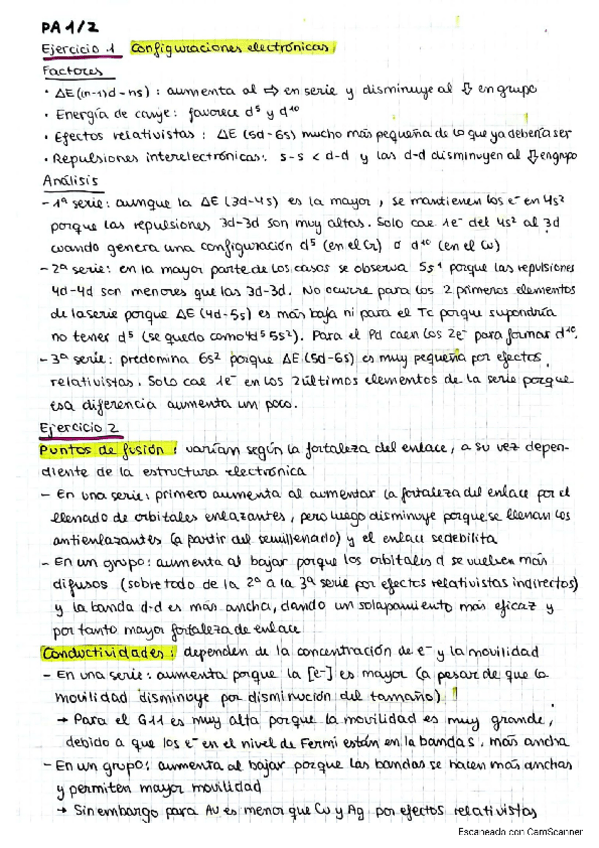 PA 1/2
Ejercicio 1 Configuraciones electrónicas
Factores
· ΔE (n-1)d - ns) : aumenta al ⇨ en serie y disminuye al ⇩ en grupo
· Energía de canje: favorece d⁵ y d¹⁰
· Efectos relativistas : ΔE (5d-6s) mucho más pequeña de lo que ya debería ser
· Repulsiones interelectrónicas: s-s < d-d y las d-d disminuyen al ⇩ engrupo
Análisis
- 1ª serie: aunque la ΔE (3d-4s) es la mayor, se mantienen los e⁻ en 4s²
porque las repulsiones 3d-3d son muy altas. Solo cae 1e⁻ del 4s² al 3d
cuando genera una configuración d⁵ (en el Cr) o d¹⁰ (en el Cu)
- 2ª serie: en la mayor parte de los casos se observa 5s¹ porque las repulsiones
4d-4d son menores que las 3d-3d. No ocurre para los 2 primeros elementos
de la serie porque ΔE (4d-5s) es más baja ni para el Tc porque supondría
no tener d⁵ (se queda como 4d⁵ 5s²). Para el Pd caen los 2e⁻ para formar d¹⁰.
- 3ª serie: predomina 6s² porque ΔE (5d-6s) es muy pequeña por efectos
relativistas. Solo cae 1e⁻ en los 2 últimos elementos de la serie porque
esa diferencia aumenta un poco.
Ejercicio 2
Puntos de fusión: varían según la fortaleza del enlace, a su vez depen-
diente de la estructura electrónica
- En una serie: primero aumenta al aumentar la fortaleza del enlace por el
llenado de orbitales enlazantes, pero luego disminuye porque se llenan los
antienlazantes (a partir del semillenado) y el enlace se debilita
- En un grupo: aumenta al bajar porque los orbitales d se vuelven más
difusos (sobre todo de la 2ª a la 3ª serie por efectos relativistas indirectos)
y la banda d-d es más ancha, dando un solapamiento más eficaz y
por tanto mayor fortaleza de enlace
Conductividades: dependen de la concentración de e⁻ y la movilidad
- En una serie: aumenta porque la [e⁻] es mayor (a pesar de que la
movilidad disminuye por disminución del tamaño)
→ Para el G11 es muy alta porque la movilidad es muy grande,
debido a que los e⁻ en el nivel de Fermi están en la banda s, más ancha
- En un grupo: aumenta al bajar porque las bandas se hacen más anchas
y permiten mayor movilidad
→ Sin embargo para Au es menor que Cu y Ag por efectos relativistas
Escaneado con CamScanner